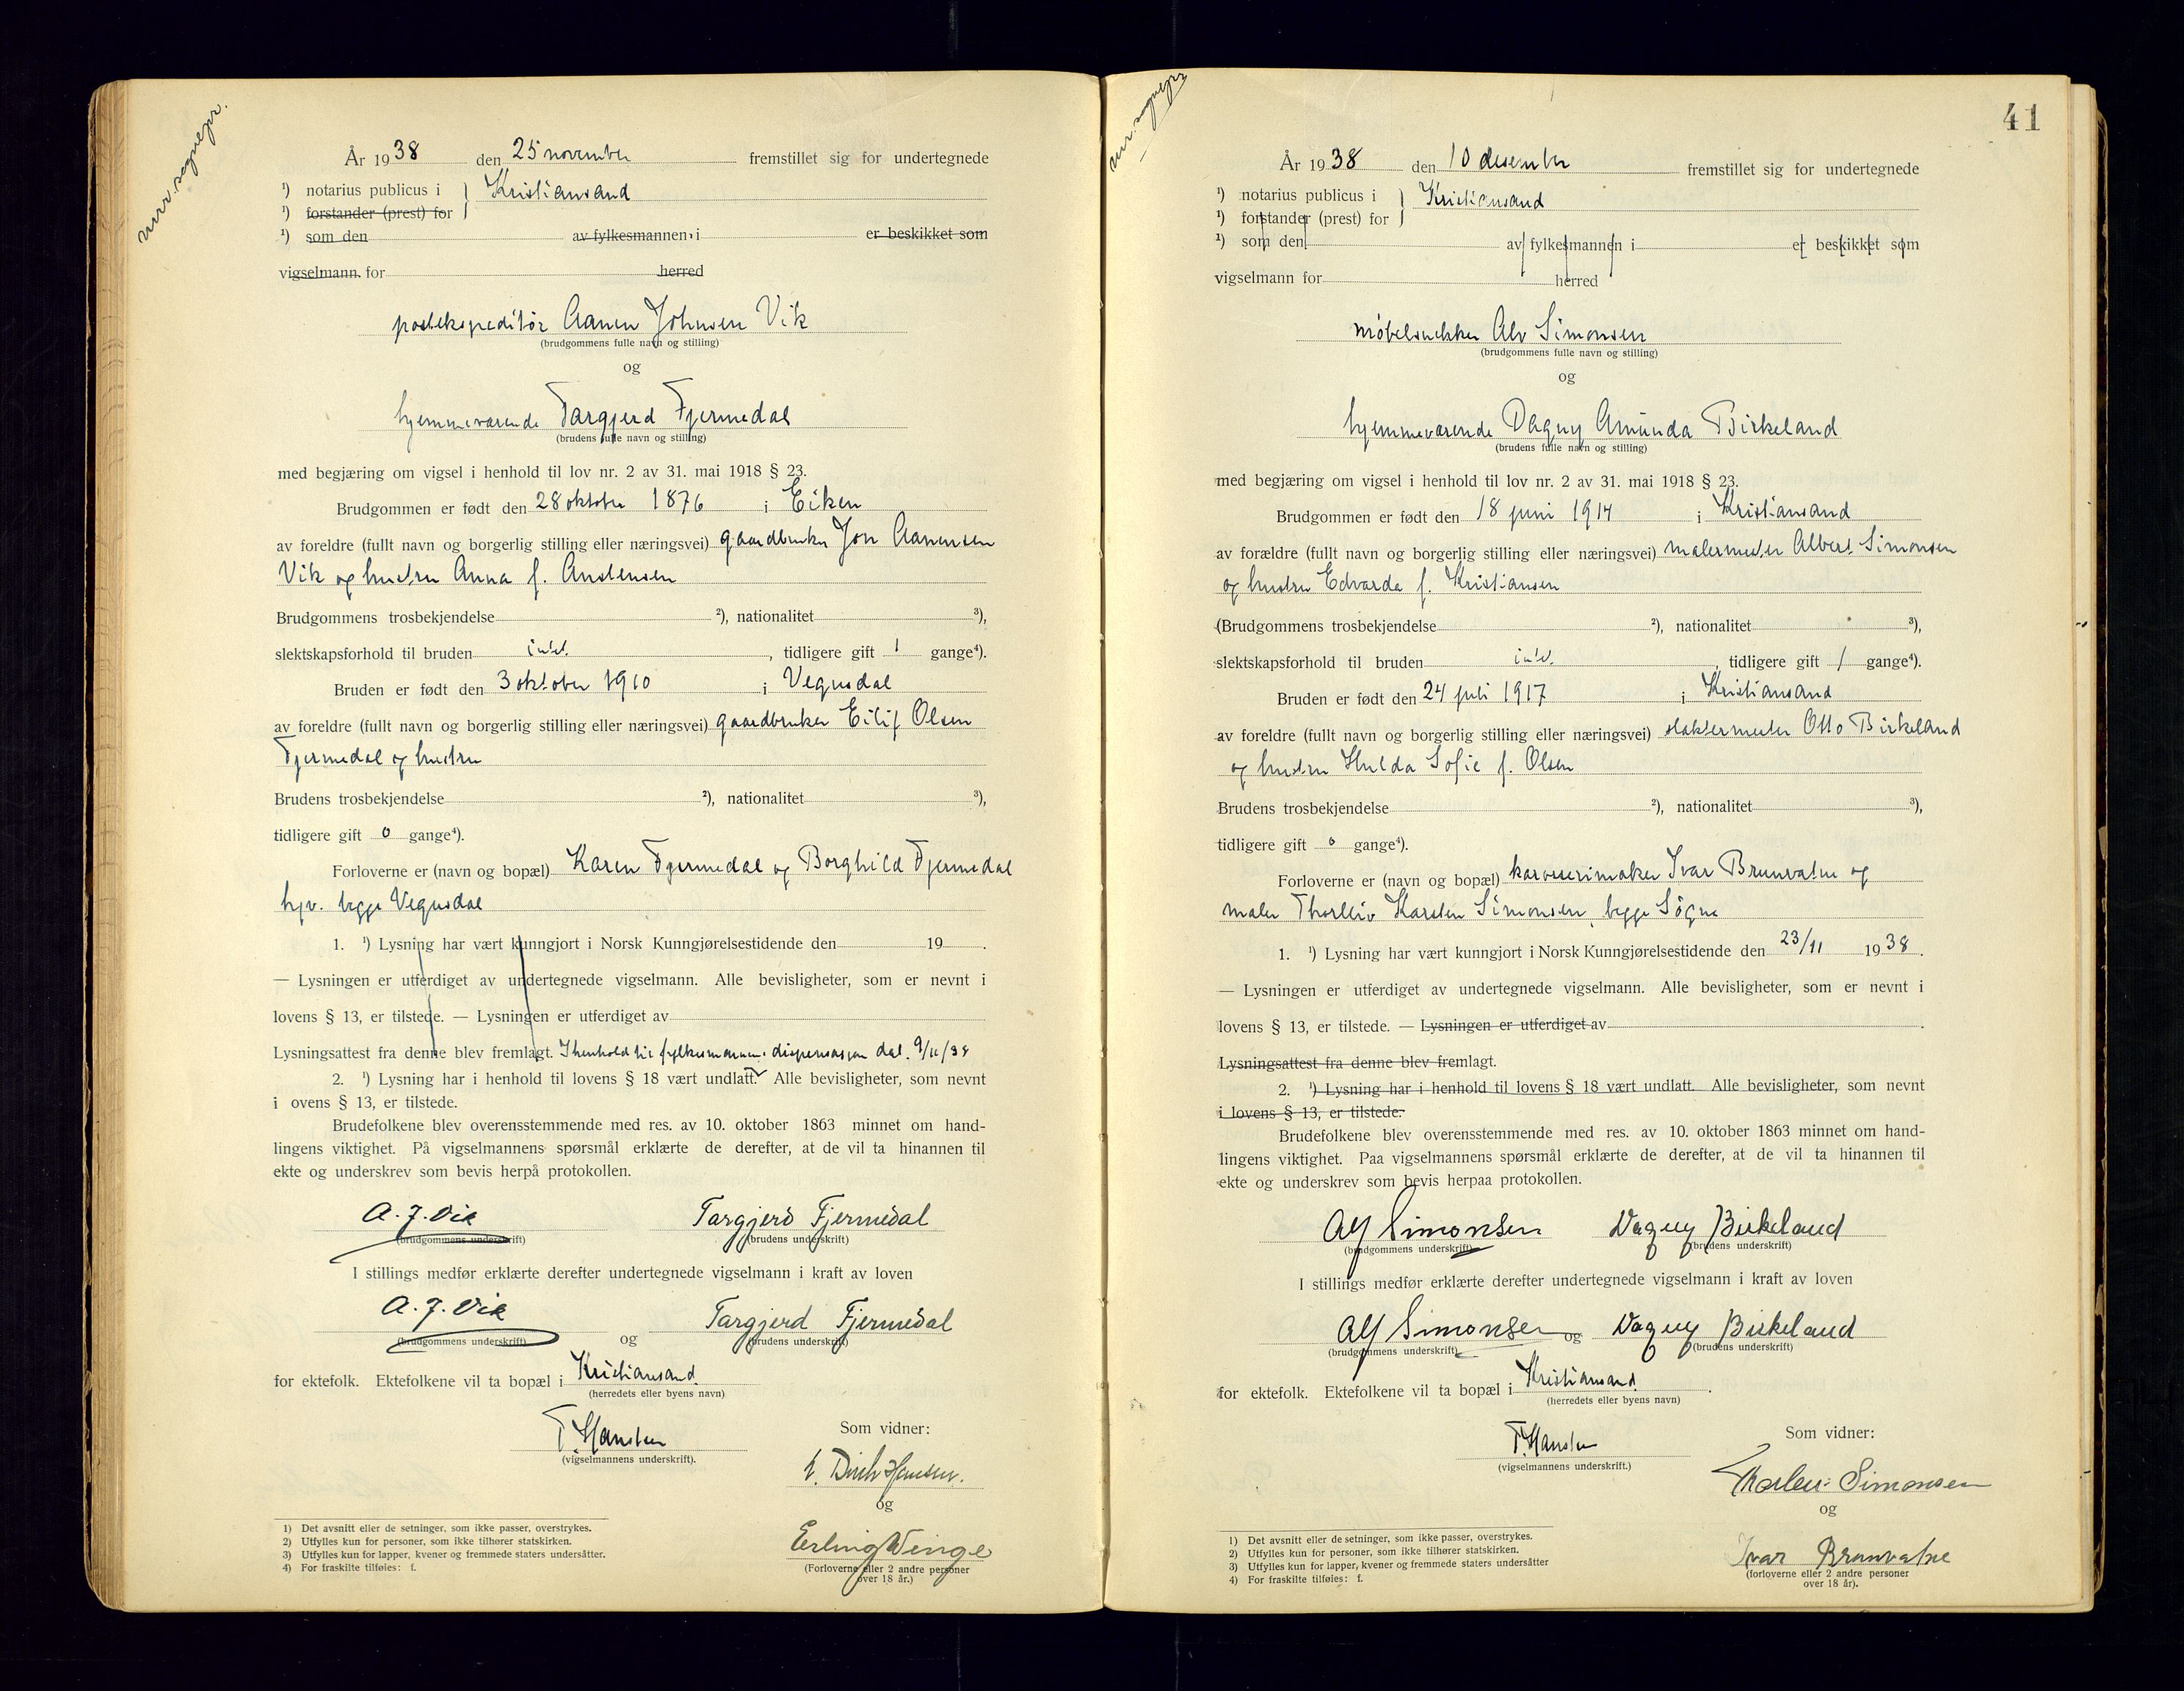 År 1938 den 25 november fremstillet sig for undertegnede
¹) notarius publicus i } Kristiansand
¹) forstander (prest) for
¹) som den av fylkesmannen i er beskikket som
vigselmann for herred
postekspeditør Aanen Johnsen Vik
(brudgommens fulle navn og stilling)
og
hjemmeværende Targjerd Fjermedal
(brudens fulle navn og stilling)
med begjæring om vigsel i henhold til lov nr. 2 av 31. mai 1918 § 23.
Brudgommen er født den 28 oktober 1876 i Eiken
av foreldre (fullt navn og borgerlig stilling eller næringsvei) gaardbruker Jon Aanensen
Vik og hustru Anna f. Anstensen
Brudgommens trosbekjendelse ²), nationalitet ³),
slektskapsforhold til bruden intet, tidligere gift 1 gange⁴).
Bruden er født den 3 oktober 1910 i Vegusdal
av foreldre (fullt navn og borgerlig stilling eller næringsvei) gaardbruker Eilif Olsen
Fjermedal og hustru
Brudens trosbekjendelse ²), nationalitet ³),
tidligere gift 0 gange⁴).
Forloverne er (navn og bopæl) Karen Fjermedal og Borghild Fjermedal
hjv. begge Vegusdal
1. ¹) Lysning har vært kunngjort i Norsk Kunngjørelsestidende den 19 .
— Lysningen er utferdiget av undertegnede vigselmann. Alle bevisligheter, som er nevnt i
lovens § 13, er tilstede. — Lysningen er utferdiget av
Lysningsattest fra denne blev fremlagt. I henhold til fylkesmannens dispensasjon dat. 9/11/38
2. ¹) Lysning har i henhold til lovens § 18 vært undlatt. Alle bevisligheter, som nevnt
i ovens § 13, er tilstede.
Brudefolkene blev overensstemmende med res. av 10. oktober 1863 minnet om hand-
lingens viktighet. På vigselmannens spørsmål erklærte de derefter, at de vil ta hinannen til
ekte og underskrev som bevis herpå protokollen.
A. J. Vik Targjerd Fjermedal
(brudgommens underskrift) (brudens underskrift)
I stillings medfør erklærte derefter undertegnede vigselmann i kraft av loven
A. J. Vik og Targjerd Fjermedal
(brudgommens underskrift) (brudens underskrift)
for ektefolk. Ektefolkene vil ta bopæl i Kristiansand
(herredets eller byens navn)
T. Hansten
(vigselmannens underskrift).
Som vidner:
Hansen.
og
Erling Winge
(Forloverne eller 2 andre personer
over 18 år.)
1) Det avsnitt eller de setninger, som ikke passer, overstrykes.
2) Utfylles kun for personer, som ikke tilhører statskirken.
3) Utfylles kun for lapper, kvener og fremmede staters undersåtter.
4) For fraskilte tilføies: f.
41
År 1938 den 10 desember fremstillet sig for undertegnede
¹) notarius publicus i } Kristiansand
¹) forstander (prest) for
¹) som den av fylkesmannen i er beskikket som
vigselmann for herred
møbelsnekker Alv Simonsen
(brudgommens fulle navn og stilling)
og
hjemmeværende Dagny Amunda Birkeland
(brudens fulle navn og stilling)
med begjæring om vigsel i henhold til lov nr. 2 av 31. mai 1918 § 23.
Brudgommen er født den 18 juni 1914 i Kristiansand
av forældre (fullt navn og borgerlig stilling eller næringsvei) malermester Albert Simonsen
og hustru Edvarda f. Kristiansen
(Brudgommens trosbekjendelse ²), nationalitet ³),
slektskapsforhold til bruden intet, tidligere gift / gange⁴).
Bruden er født den 24 juli 1917 i Kristiansand
av foreldre (fullt navn og borgerlig stilling eller næringsvei) slaktermester Otto Birkeland
og hustru Hulda Sofie f. Olsen
Brudens trosbekjendelse ²), nationalitet ³),
tidligere gift 0 gange⁴).
Forloverne er (navn og bopæl) karosserimaker Ivar Brunvatne og
maler Thorleiv Karsten Simonsen, begge Søgne
1. ¹) Lysning har vært kunngjort i Norsk Kunngjørelsestidende den 23/11 1938.
— Lysningen er utferdiget av undertegnede vigselmann. Alle bevisligheter, som er nevnt i
lovens § 13, er tilstede. — Lysningen er utferdiget av .
Lysningsattest fra denne blev fremlagt.
2. ¹) Lysning har i henhold til lovens § 18 vært undlatt. Alle bevisligheter, som nevnt
i lovens § 13, er tilstede.
Brudefolkene blev overensstemmende med res. av 10. oktober 1863 minnet om hand-
lingens viktighet. Paa vigselmannens spørsmål erklærte de derefter, at de vil ta hinannen til
ekte og underskrev som bevis herpaa protokollen.
Alf Simonsen Dagny Birkeland
(brudgommens underskrift) (brudens underskrift)
I stillings medfør erklærte derefter undertegnede vigselmann i kraft av loven
Alf Simonsen og Dagny Birkeland
(brudgommens underskrift) (brudens underskrift)
for ektefolk. Ektefolkene vil ta bopæl i Kristiansand.
(herredets eller byens navn)
T. Hansten
(vigselmannens underskrift.)
Som vidner:
Thorleiv Simonsen
og
Ivar Brunvatne
(forloverne eller 2 andre personer
over 18 år).
1) Det avsnitt eller de setninger, som ikke passer, overstrykes.
2) Utfylles kun for personer, som ikke tilhører statskirken.
3) Utfylles kun for lapper, kvener og fremmede staters undersåtter
4) For fraskilte tilføies: f.